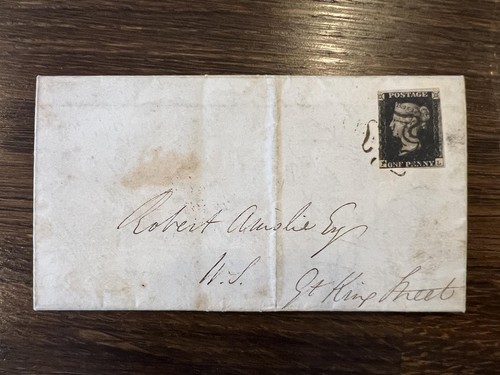 POSTAGE
ONE PENNY
Robert Ainslie Esq
W.S.
Gt King Street